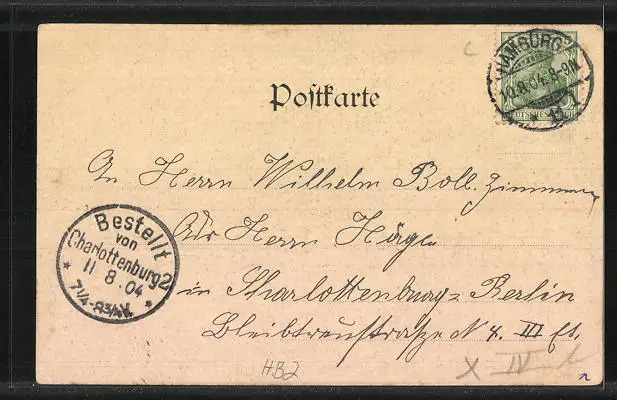 HAMBURG
10.8.04.8-9N.
* 1
DEUTSCHES REICH
Postkarte
An Herrn Wilhelm Boll. Zimmer
Adr Herrn Häge
in Charlottenburg-Berlin
Bleibtreustraße N 4. III Et.
Bestellt
von
Charlottenburg 2
11 8. 04
7 1/4-8 3/4 V.
HB2
X IV